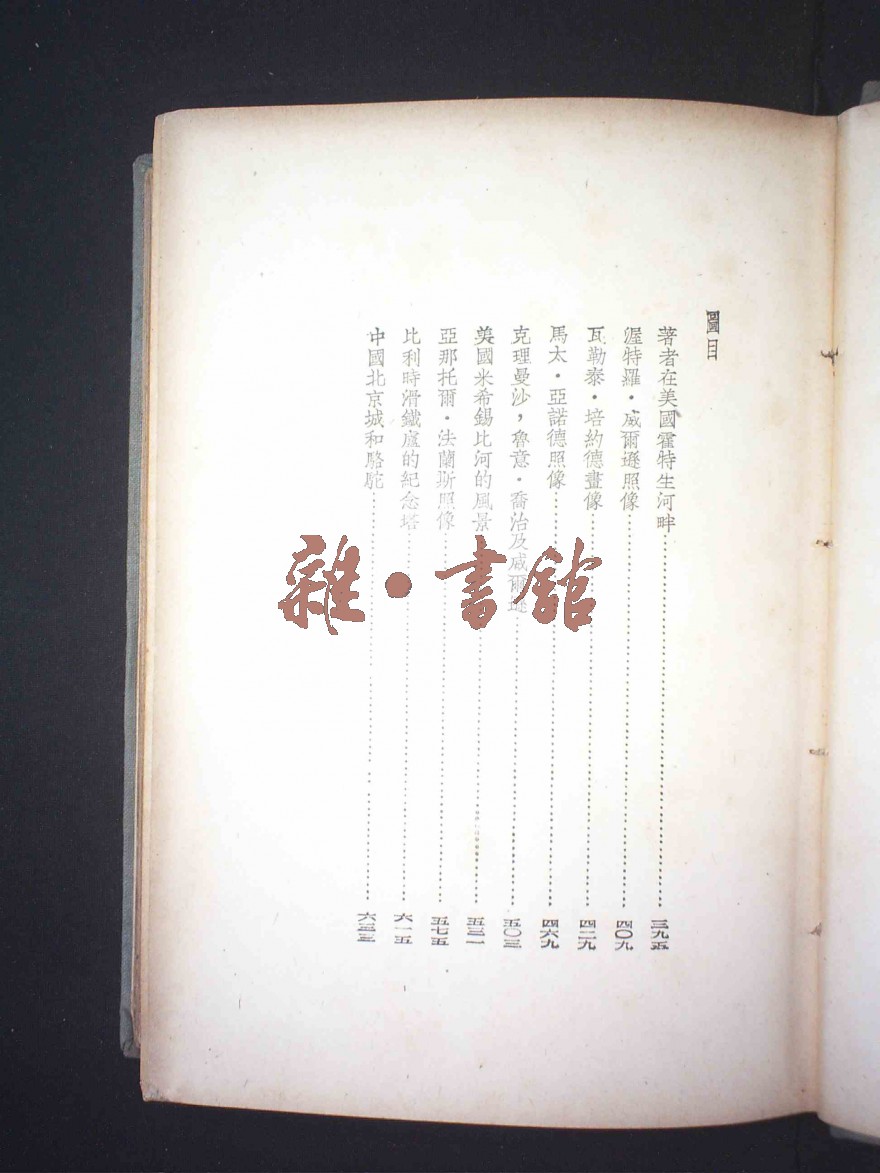 圖目
著者在美國霍特生河畔……三九五
渥特羅・威爾遜照像……四〇九
瓦勒泰・培約德畫像……四二九
馬太・亞諾德照像……四六九
克理曼沙，魯意・喬治及威爾遜……五〇三
美國米希錫比河的風景……五三一
亞那托爾・法蘭斯照像……五七五
比利時滑鐵盧的紀念塔……六一五
中國北京城和駱駝……六三三
雜・書館